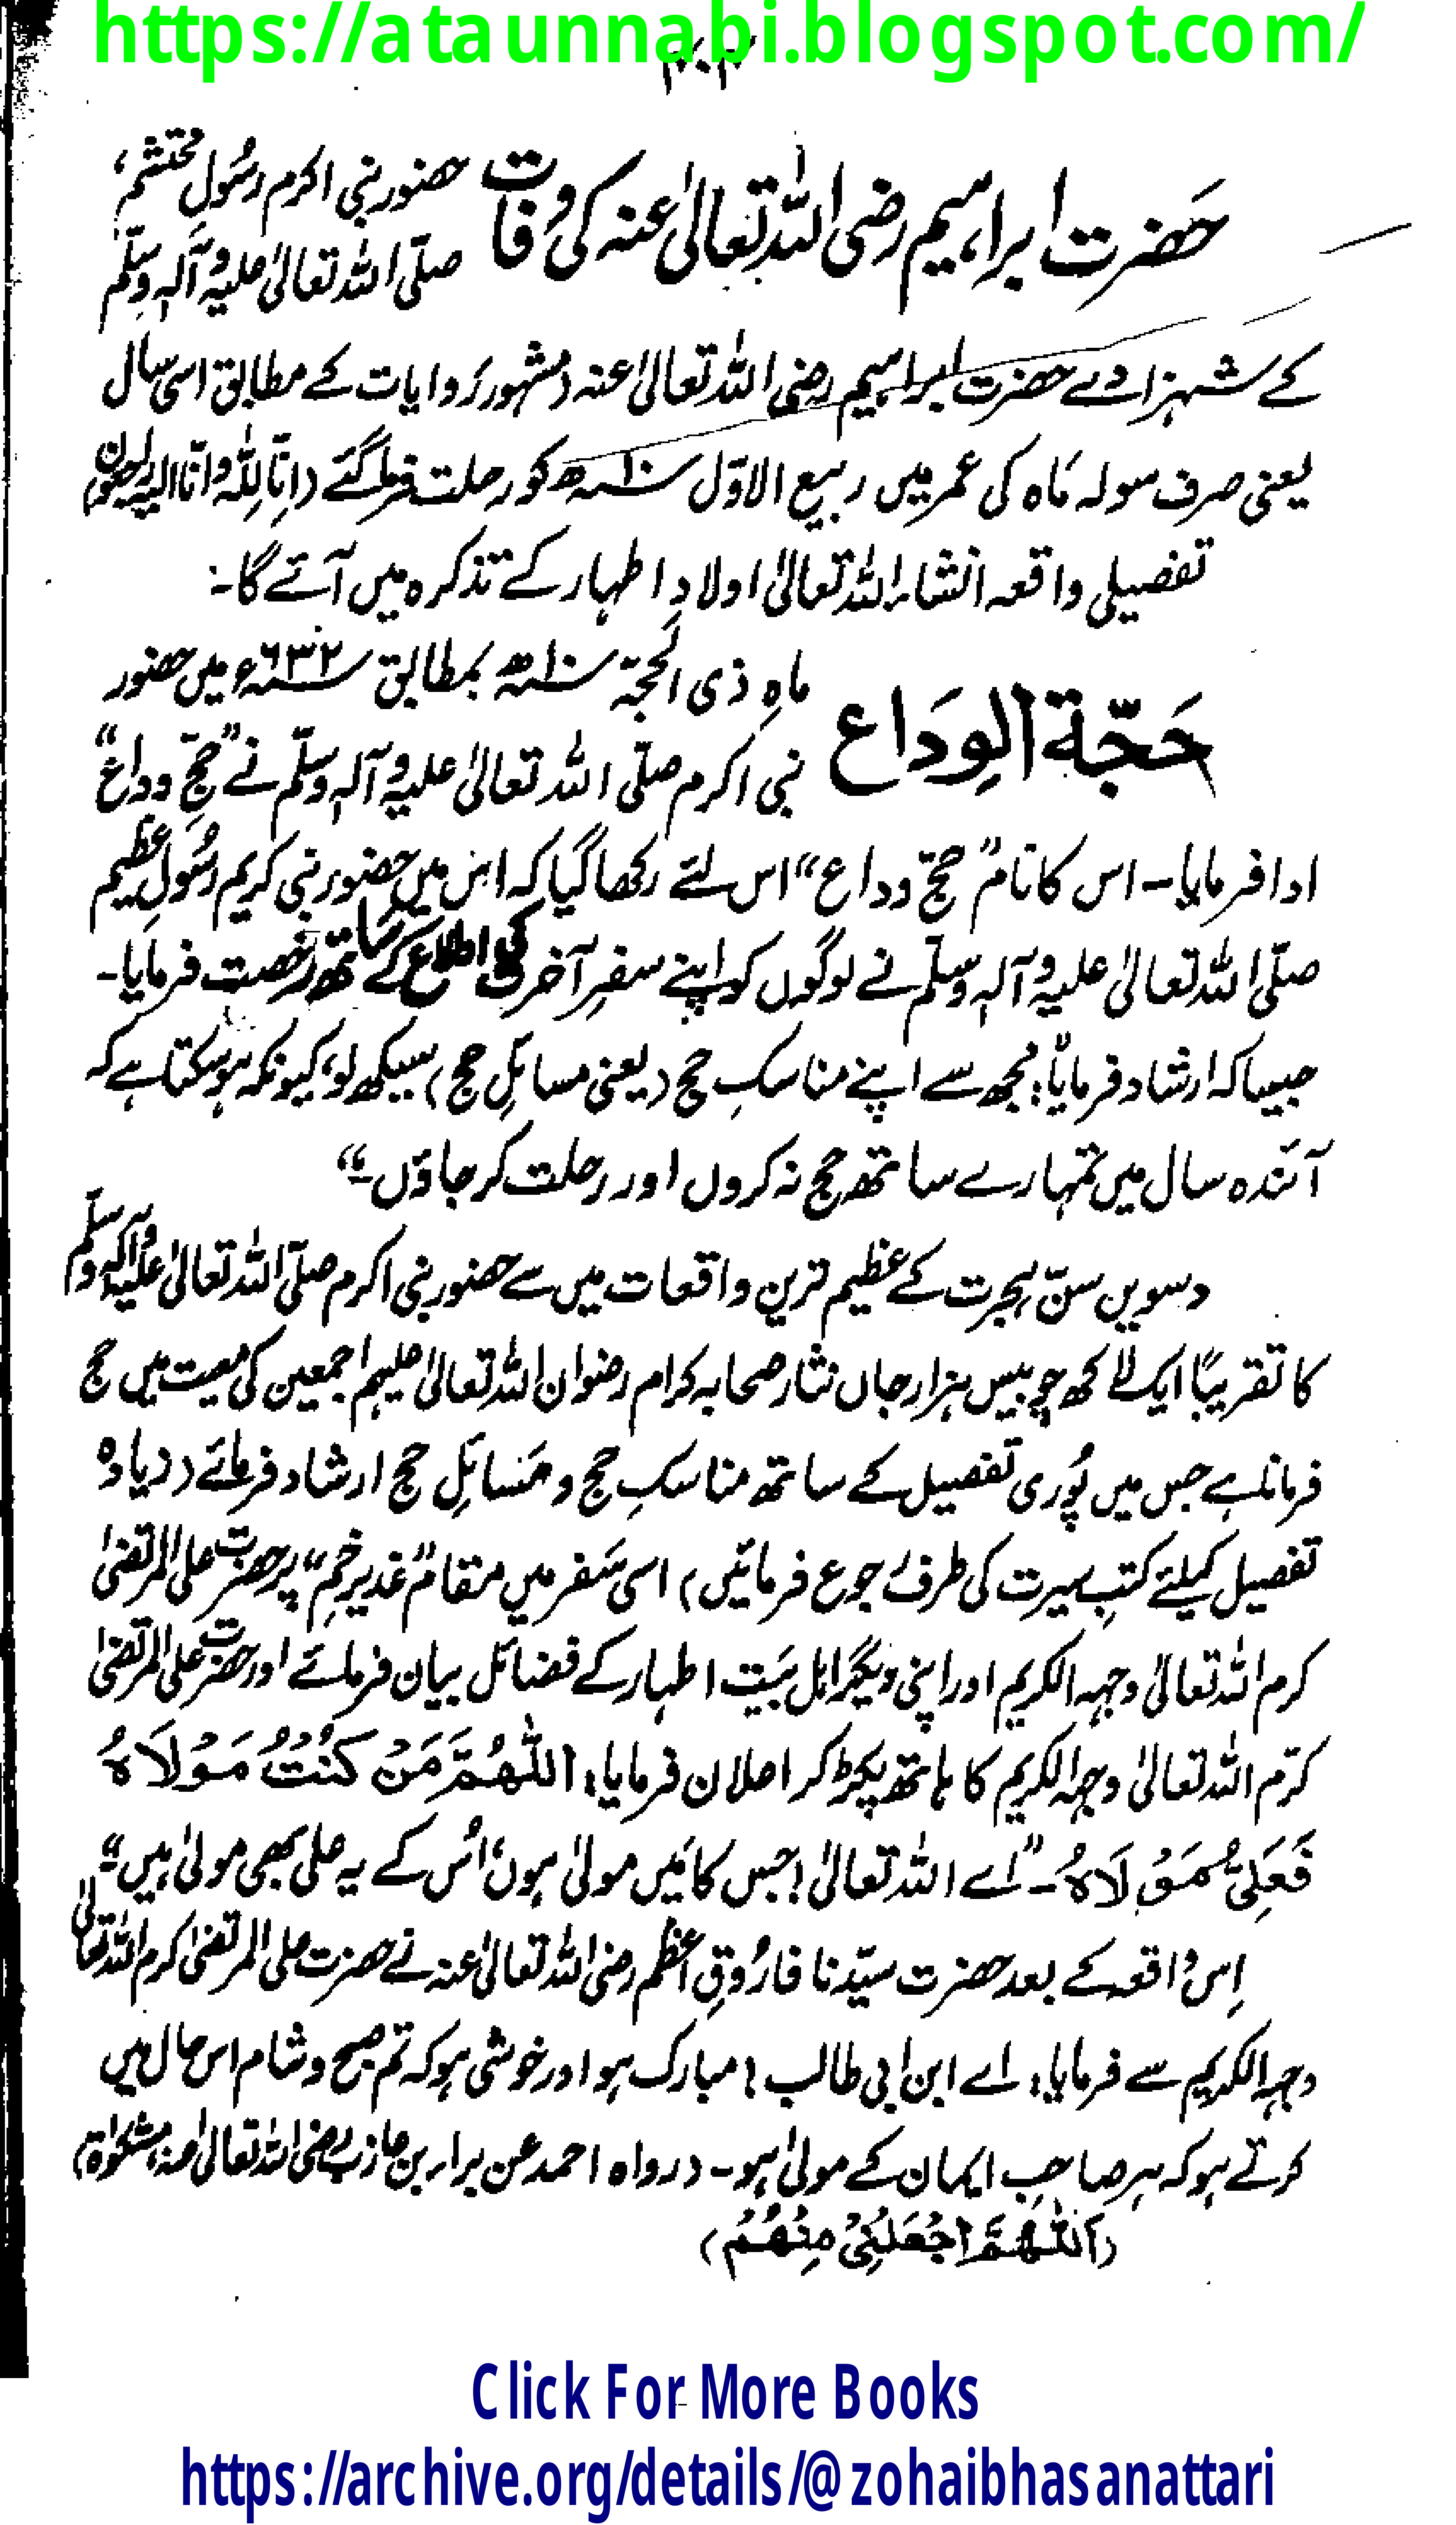 https://ataunnabi.blogspot.com/
حضرت ابراہیم رضی اللہ تعالیٰ عنہ کی وفات
حضور نبی اکرم رسُولِ محتشم،
صلّی اللہ تعالیٰ علیہ وآلہٖ وسلّم
کے شہزادے حضرت ابراہیم رضی اللہ تعالیٰ عنہ (مشہور روایات کے مطابق اسی سال
یعنی صرف سولہ ماہ کی عمر میں ربیع الاوّل ۱۰ھ کو رحلت فرما گئے (اِنّا لِلّٰہ وانّا الیہ راجعون)
تفصیلی واقعہ انشاء اللہ تعالیٰ اولادِ اطہار کے تذکرہ میں آئے گا۔
حَجّۃ الوِدَاع
ماہِ ذی الحجّہ ۱۰ھ بمطابق ۶۳۲ء میں حضور
نبی اکرم صلّی اللہ تعالیٰ علیہ وآلہٖ وسلّم نے ”حجِّ وداع“
ادا فرمایا۔ اس کا نام ”حجّ وداع“ اس لئے رکھا گیا کہ اس میں حضور نبی کریم رسُولِ عظیم
صلّی اللہ تعالیٰ علیہ وآلہٖ وسلّم نے لوگوں کو اپنے سفرِ آخر کی اطلاع کے ساتھ رخصت فرمایا۔
جیسا کہ ارشاد فرمایا: ”مجھ سے اپنے مناسکِ حج (یعنی مسائلِ حج) سیکھ لو، کیونکہ ہو سکتا ہے کہ
آئندہ سال میں تمہارے ساتھ حج نہ کروں اور رحلت کر جاؤں۔“
دسویں سنّ ہجرت کے عظیم ترین واقعات میں سے حضور نبی اکرم صلّی اللہ تعالیٰ علیہ وآلہٖ وسلّم
کا تقریباً ایک لاکھ چوبیس ہزار جاں نثار صحابہ کرام رضوان اللہ تعالیٰ علیہم اجمعین کی معیت میں حج
فرمانا ہے جس میں پُوری تفصیل کے ساتھ مناسکِ حج و مَسائلِ حج ارشاد فرمائے (زیادہ
تفصیل کیلئے کتبِ سیرت کی طرف رجوع فرمائیں) اسی سَفر میں مقام ”غدیرِ خُم“ پر حضرت علی المرتضیٰ
کرم اللہ تعالیٰ وجہہ الکریم اور اپنی دیگر اہل بَیت اطہار کے فضائل بیان فرمائے اور حضرت علی المرتضیٰ
کرّم اللہ تعالیٰ وجہہ الکریم کا ہاتھ پکڑ کر اعلان فرمایا: اَللّٰھُمَّ مَنْ کُنْتُ مَوْلَاہُ
فَعَلِیٌّ مَوْلَاہُ۔ ”اے اللہ تعالیٰ! جس کا مَیں مولیٰ ہوں، اُس کے یہ علی بھی مولیٰ ہیں۔“
اِس واقعہ کے بعد حضرت سیّدنا فارُوقِ اعظم رضی اللہ تعالیٰ عنہ نے حضرت علی المرتضیٰ کرم اللہ تعالیٰ
وجہہ الکریم سے فرمایا: اے ابن ابی طالب! مبارک ہو اور خوشی ہو کہ تم صبح و شام اس حال میں
کرتے ہو کہ ہر صاحبِ ایمان کے مولیٰ ہو۔ (رواہ احمد عن براء بن عازب رضی اللہ تعالیٰ عنہ، مشکوٰۃ)
(اَللّٰھُمَّ اجْعَلْنِیْ مِنْھُمْ)
Click For More Books
https://archive.org/details/@zohaibhasanattari